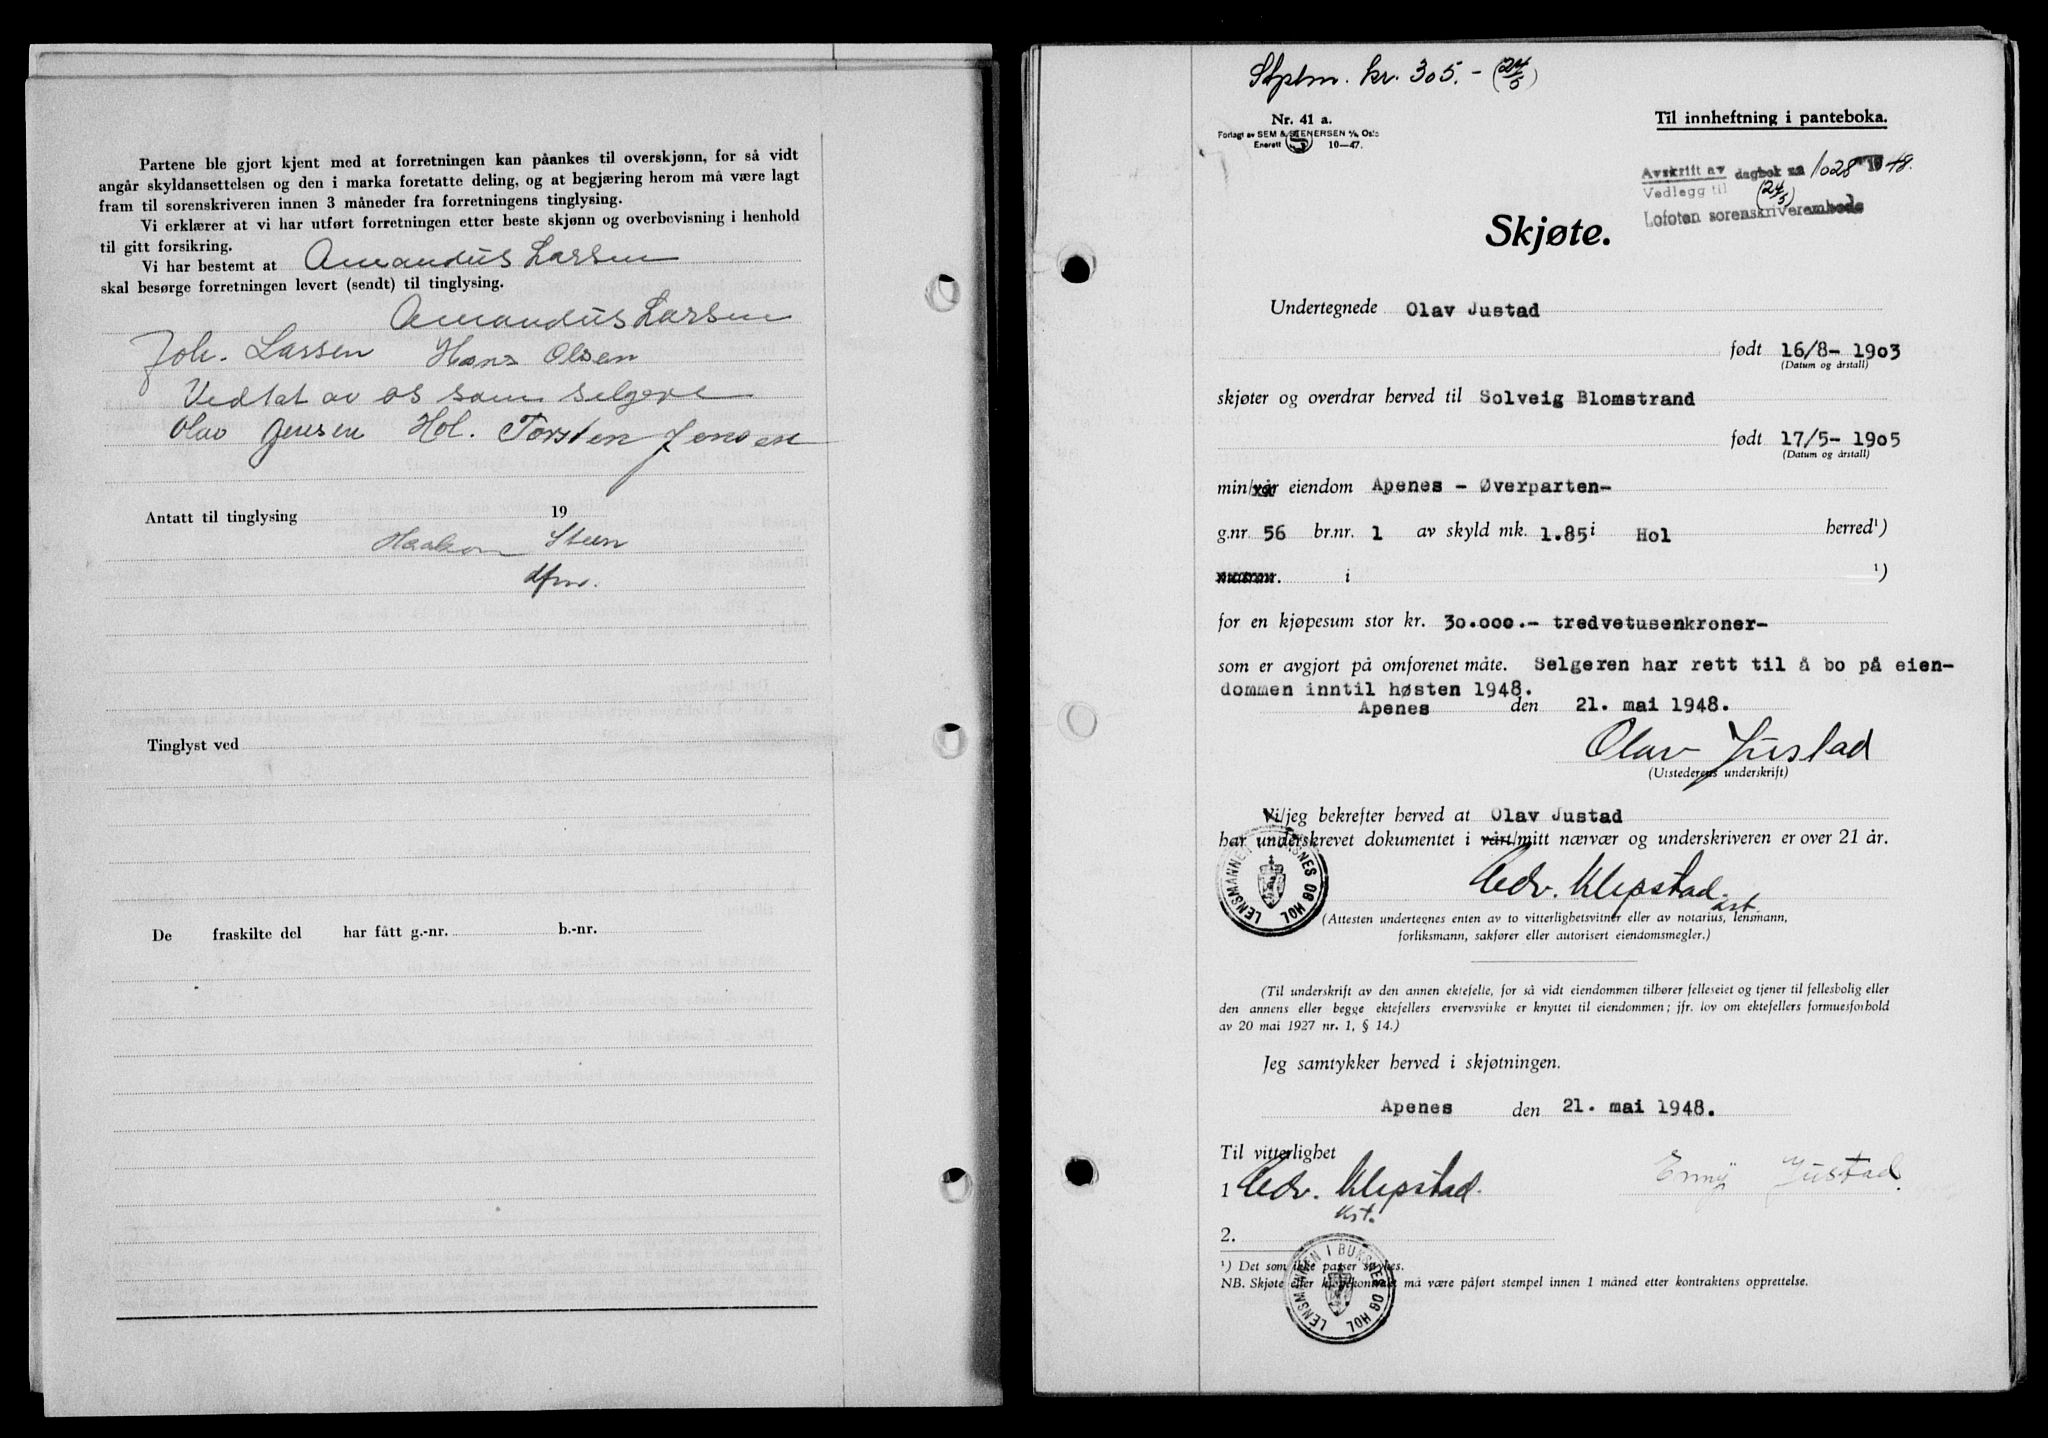 Partene ble gjort kjent med at forretningen kan påankes til overskjønn, for så vidt
angår skyldansettelsen og den i marka foretatte deling, og at begjæring herom må være lagt
fram til sorenskriveren innen 3 måneder fra forretningens tinglysing.
Vi erklærer at vi har utført forretningen etter beste skjønn og overbevisning i henhold
til gitt forsikring.
Vi har bestemt at Amandus Larsen
skal besørge forretningen levert (sendt) til tinglysing.
Amandus Larsen
Joh. Larsen Hans Olsen
Vedtat av os som selgere
Olav Jensen Hol. Torsten Jensen
Antatt til tinglysing 19
Haakon Steen
dfm.
Tinglyst ved
De fraskilte del har fått g.-nr. b.-nr.
Stplm. kr. 305.- (24/5)
Nr. 41 a.
Forlagt av SEM & STENERSEN A/S, Oslo
Enerett 10-47.
Til innheftning i panteboka.
Avskrift av dagbok nr 1028 1948.
Vedlegg til (24/5)
Lofoten sorenskriverembede
Skjøte.
Undertegnede Olav Justad
født 16/8- 1903
(Datum og årstall)
skjøter og overdrar herved til Solveig Blomstrand
født 17/5- 1905
(Datum og årstall)
min/vår eiendom Apenes - Øverparten-
g.nr. 56 br.nr. 1 av skyld mk. 1.85 i Hol herred¹)
i ¹)
for en kjøpesum stor kr. 30.000.- tredvetusenkroner-
som er avgjort på omforenet måte. Selgeren har rett til å bo på eien-
dommen inntil høsten 1948.
Apenes den 21. mai 1948.
Olav Justad
(Utstederens underskrift)
Vi/jeg bekrefter herved at Olav Justad
har underskrevet dokumentet i vårt/mitt nærvær og underskriveren er over 21 år.
Edv. Klepstad
kst.
LENSMANNEN I BUKSNES OG HOL
(Attesten undertegnes enten av to vitterlighetsvitner eller av notarius, lensmann,
forliksmann, sakfører eller autorisert eiendomsmegler.)
(Til underskrift av den annen ektefelle, for så vidt eiendommen tilhører felleseiet og tjener til fellesbolig eller
den annens eller begge ektefellers ervervsvirke er knyttet til eiendommen; jfr. lov om ektefellers formuesforhold
av 20 mai 1927 nr. 1, § 14.)
Jeg samtykker herved i skjøtningen.
Apenes den 21. mai 1948.
Til vitterlighet
1 Edv. Klepstad. Enny Justad.
kst.
2.
¹) Det som ikke passer strykes.
NB. Skjøte eller kjøpekontrakt må være påført stempel innen 1 måned etter kontraktens opprettelse.
LENSMANNEN I BUKSNES OG HOL